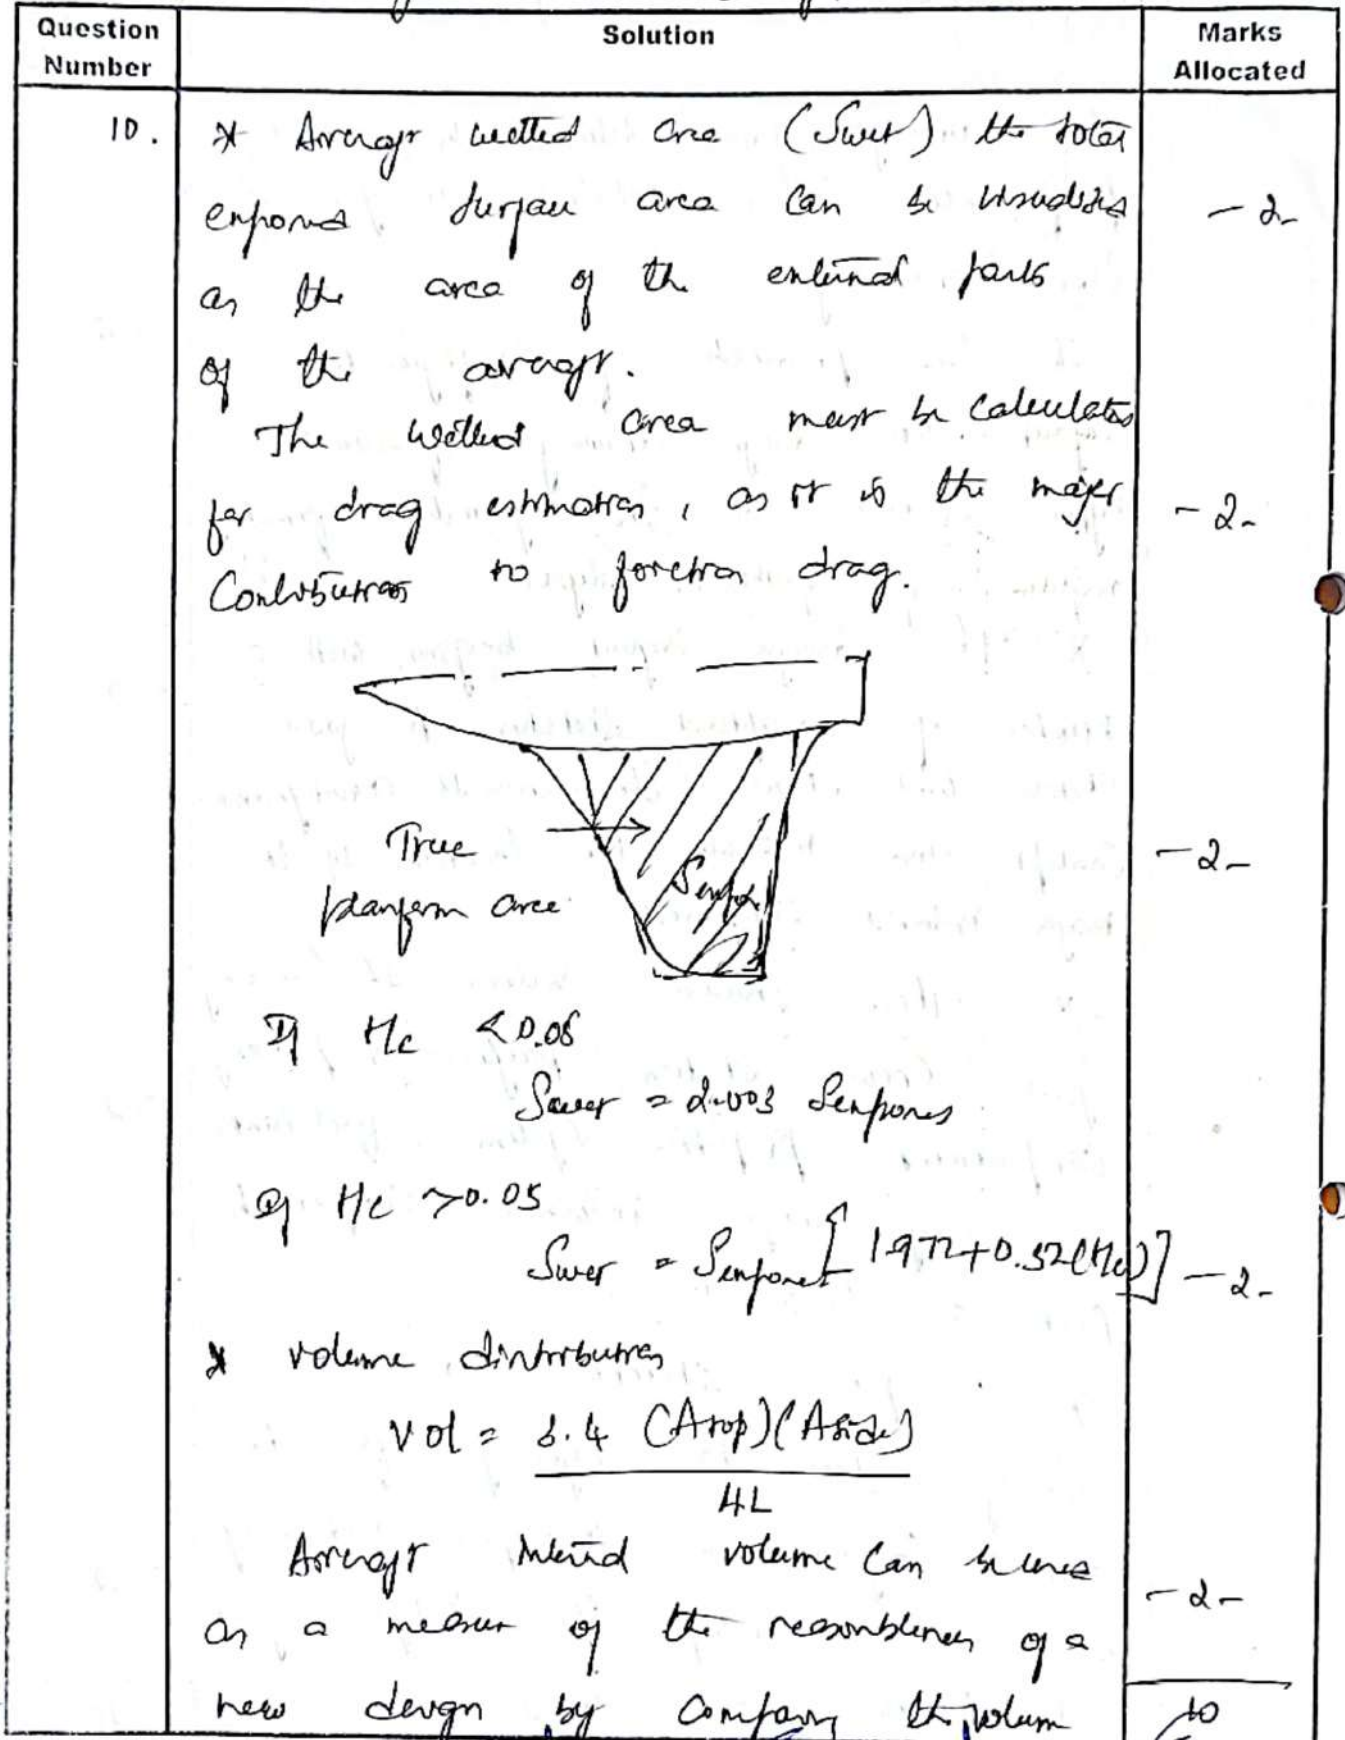 Question Number
Solution
Marks Allocated
10.
* Aircraft wetted area (Swet) the total
exposed surface area can be visualized
as the area of the external parts
of the aircraft.
- 2 -
The wetted area must be calculated
for drag estimation, as it is the major
to friction drag.
- 2 -
True
planform area
- 2 -
If t/c < 0.05
Swet = 2.003 Sexposed
If t/c > 0.05
Swet = Sexposed [1.977 + 0.52 (t/c)]
- 2 -
* volume distribution
Vol = 3.4 (Atop)(Aside)
4L
Aircraft internal volume can be used
- 2 -
as a measure of the of a
new design by comparing the volume
10